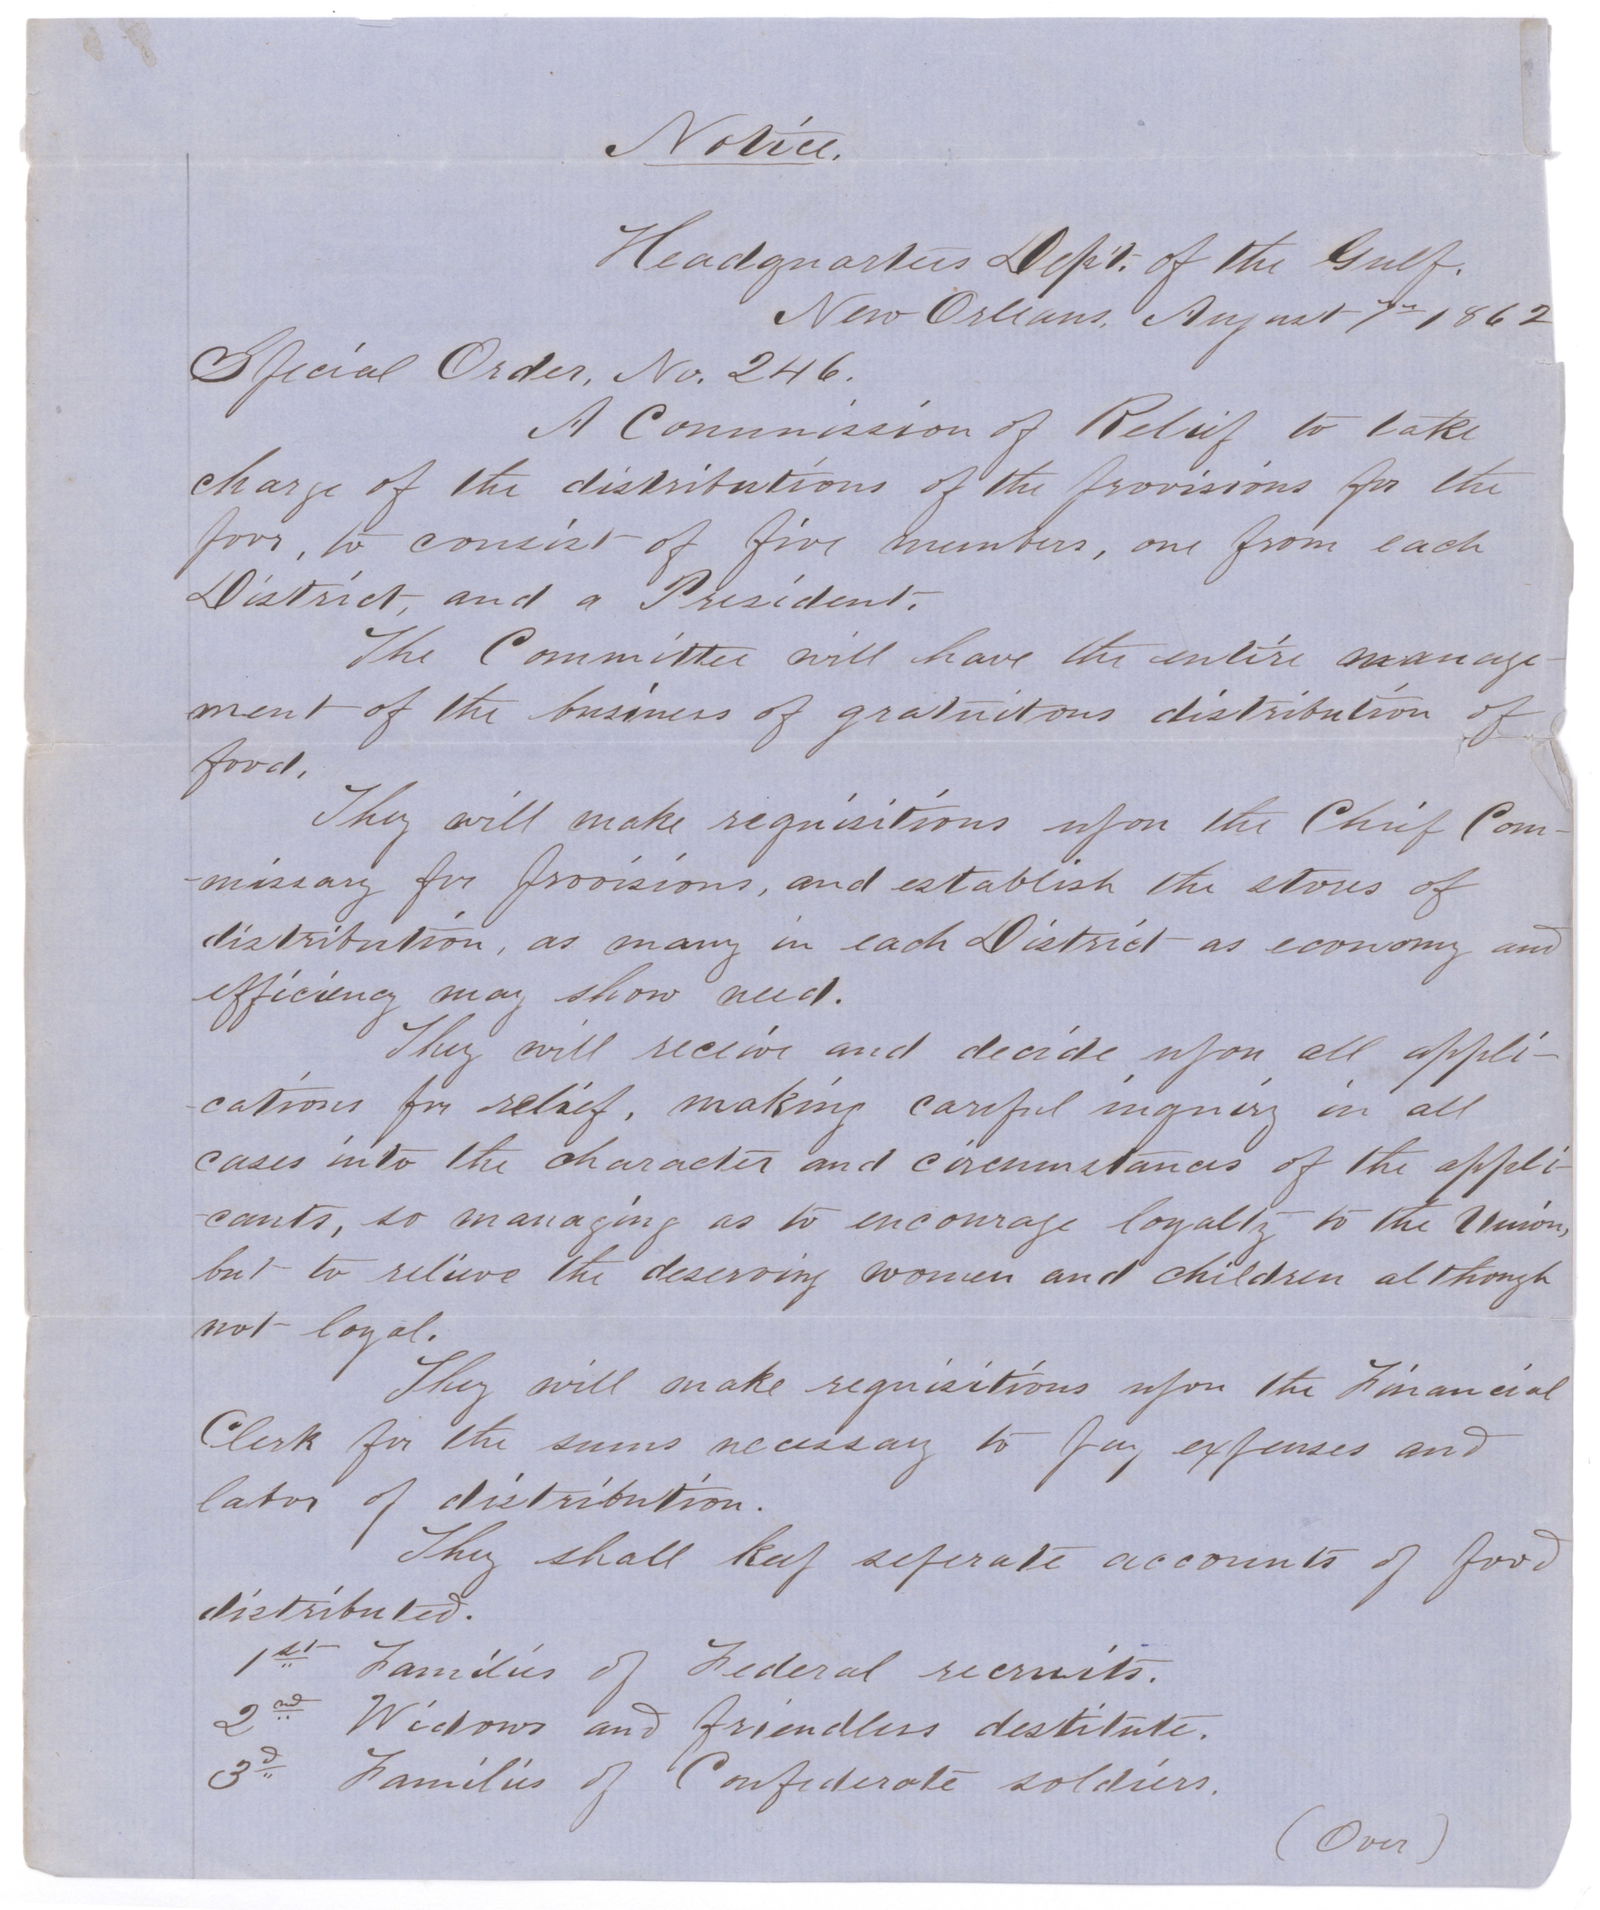 Notice.
Headquarters Dep't. of the Gulf.
New Orleans, August 7th 1862
Special Order, No. 246.
A Commission of Relief to take
charge of the distributions of the provisions for the
poor, to consist of five members, one from each
District, and a President.
The Committee will have the entire manage-
ment of the business of gratuitous distribution of
food.
They will make requisitions upon the Chief Com-
-missary for provisions, and establish the stores of
distribution, as many in each District as economy and
efficiency may show need.
They will receive and decide upon all appli-
-cations for relief, making careful inquiry in all
cases into the character and circumstances of the appli-
-cants, so managing as to encourage loyalty to the Union,
but to relieve the deserving women and children although
not loyal.
They will make requisitions upon the Financial
Clerk for the sums necessary to pay expenses and
labor of distribution.
They shall keep seperate accounts of food
distributed.
1st Families of Federal recruits.
2nd Widows and friendless destitute.
3d Families of Confederate soldiers.
(Over)